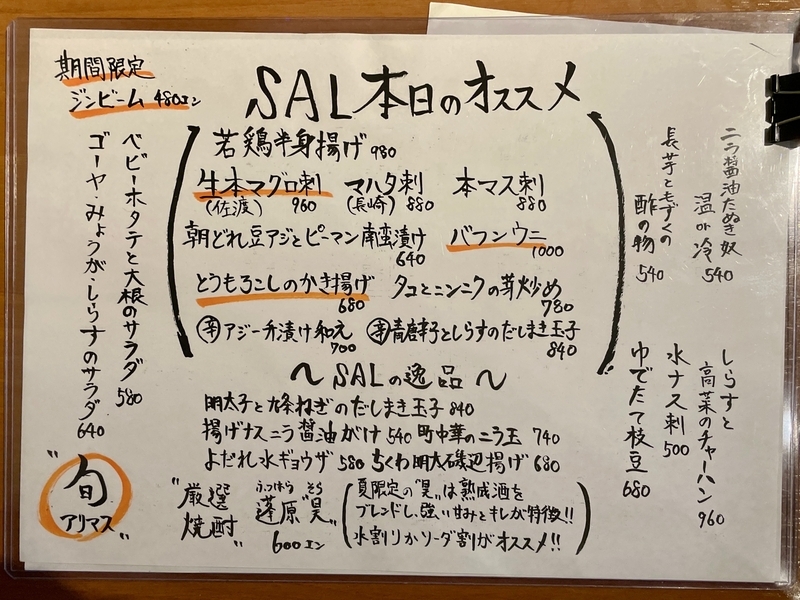 期間限定
ジンビーム 480エン
SAL本日のオススメ
若鶏半身揚げ 980
生本マグロ刺 マハタ刺 本マス刺
(佐渡) 960 (長崎) 880 880
朝どれ豆アジとピーマン南蛮漬け バフンウニ
640 1000
とうもろこしのかき揚げ タコとニンニクの芽炒め
680 780
辛アジ一升漬け和え 辛青唐辛子としらすのだしまき玉子
700 840
ベビーホタテと大根のサラダ 580
ゴーヤ・みょうが・しらすのサラダ 640
ニラ醤油たぬき奴
温or冷 540
長芋ともずくの
酢の物 540
〜SALの逸品〜
明太子と九条ねぎのだしまき玉子 840
揚げナスニラ醤油がけ 540 町中華のニラ玉 740
よだれ水ギョウザ 580 ちくわ明太磯辺揚げ 680
しらすと
高菜のチャーハン 960
水ナス刺 500
ゆでたて枝豆 680
"旬
アリマス"
"厳選
焼酎"
ふつはら そら
蓬原"昊"
600エン
夏限定の"昊"は熟成酒を
ブレンドし、強い甘みとキレが特徴!!
水割りかソーダ割がオススメ!!